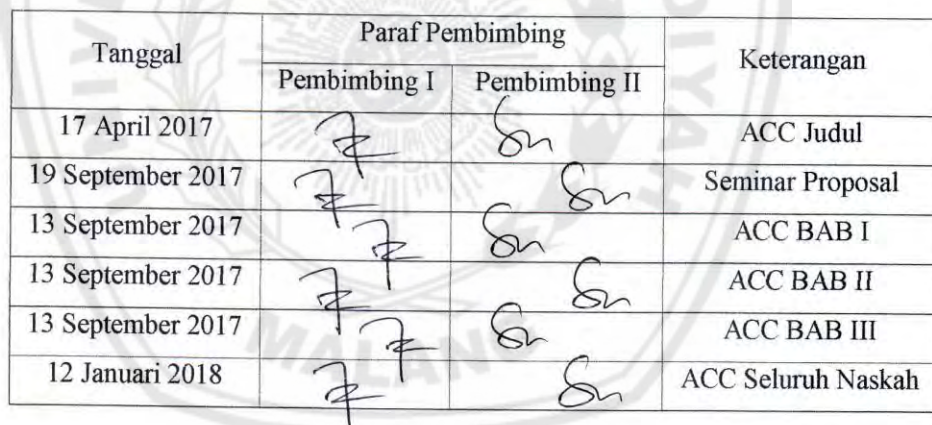 Tanggal Paraf Pembimbing Keterangan
Pembimbing I Pembimbing II
17 April 2017 ACC Judul
19 September 2017 Seminar Proposal
13 September 2017 ACC BAB I
13 September 2017 ACC BAB II
13 September 2017 ACC BAB III
12 Januari 2018 ACC Seluruh Naskah
MALANG